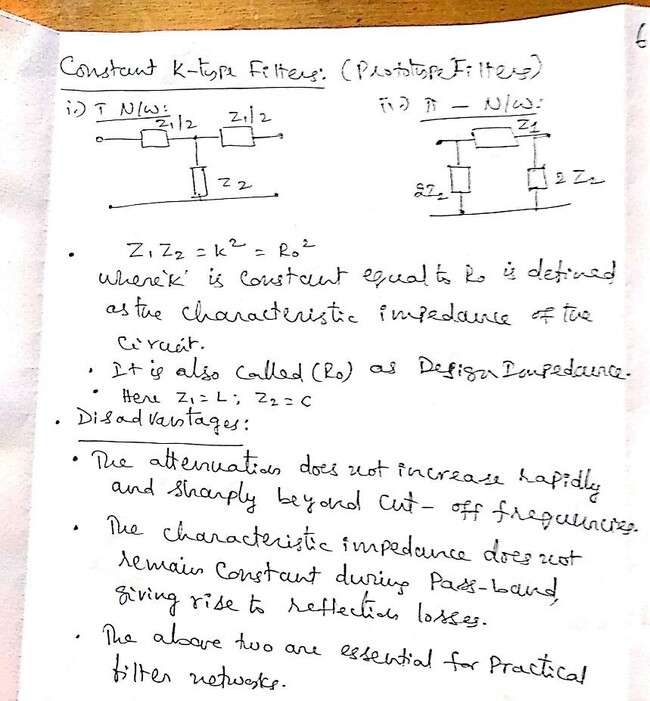 6
Constant K-type Filters: (Prototype Filters)
i.) T N/W: ii.) π - N/W:
Z1/2 Z1/2 Z1
Z2 2Z2 2Z2
• Z1Z2 = k² = R0²
where 'k' is constant equal to R0 is defined
as the characteristic impedance of the
circuit.
• It is also called (R0) as Design Impedance.
• Here Z1 = L ; Z2 = C
• Disadvantages:
• The attenuation does not increase rapidly
and sharply beyond cut-off frequencies.
• The characteristic impedance does not
remain constant during Pass-band,
giving rise to reflection losses.
• The above two are essential for Practical
filter networks.